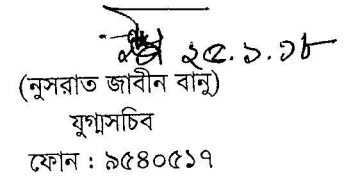 ২৫.১.১৮
(নুসরাত জাবীন বানু)
যুগ্মসচিব
ফোন : ৯৫৪০৫১৭